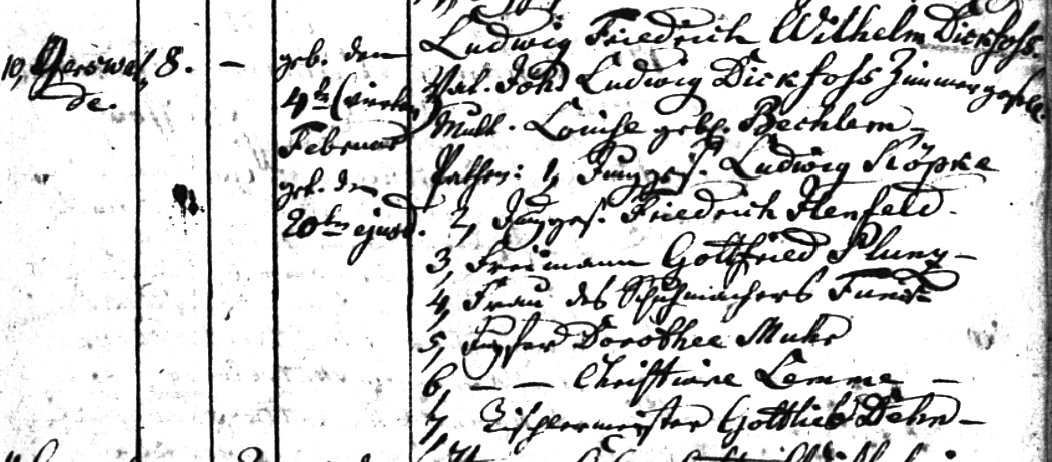 10, Gerswal
de.
8. —
geb. den
4ten (vierten)
Februar
get. den
20ten ejusd.
Ludwig Friedrich Wilhelm Dickfohs
Vat. Joh. Ludwig Dickfohs Zimmergesell.
Mutt. Louise geb. Bechlem
Pathen: 1, Junges. Ludwig Köpke
2, Junges. Friedrich Ilenfeld.
3, Freimann Gottfried Pluny —
4, Frau des Schuhmachers
5, Jungfer Dorothee Muhr
6, — — Christine Lemme —
7, Tischlermeister Gottlieb Dehn —